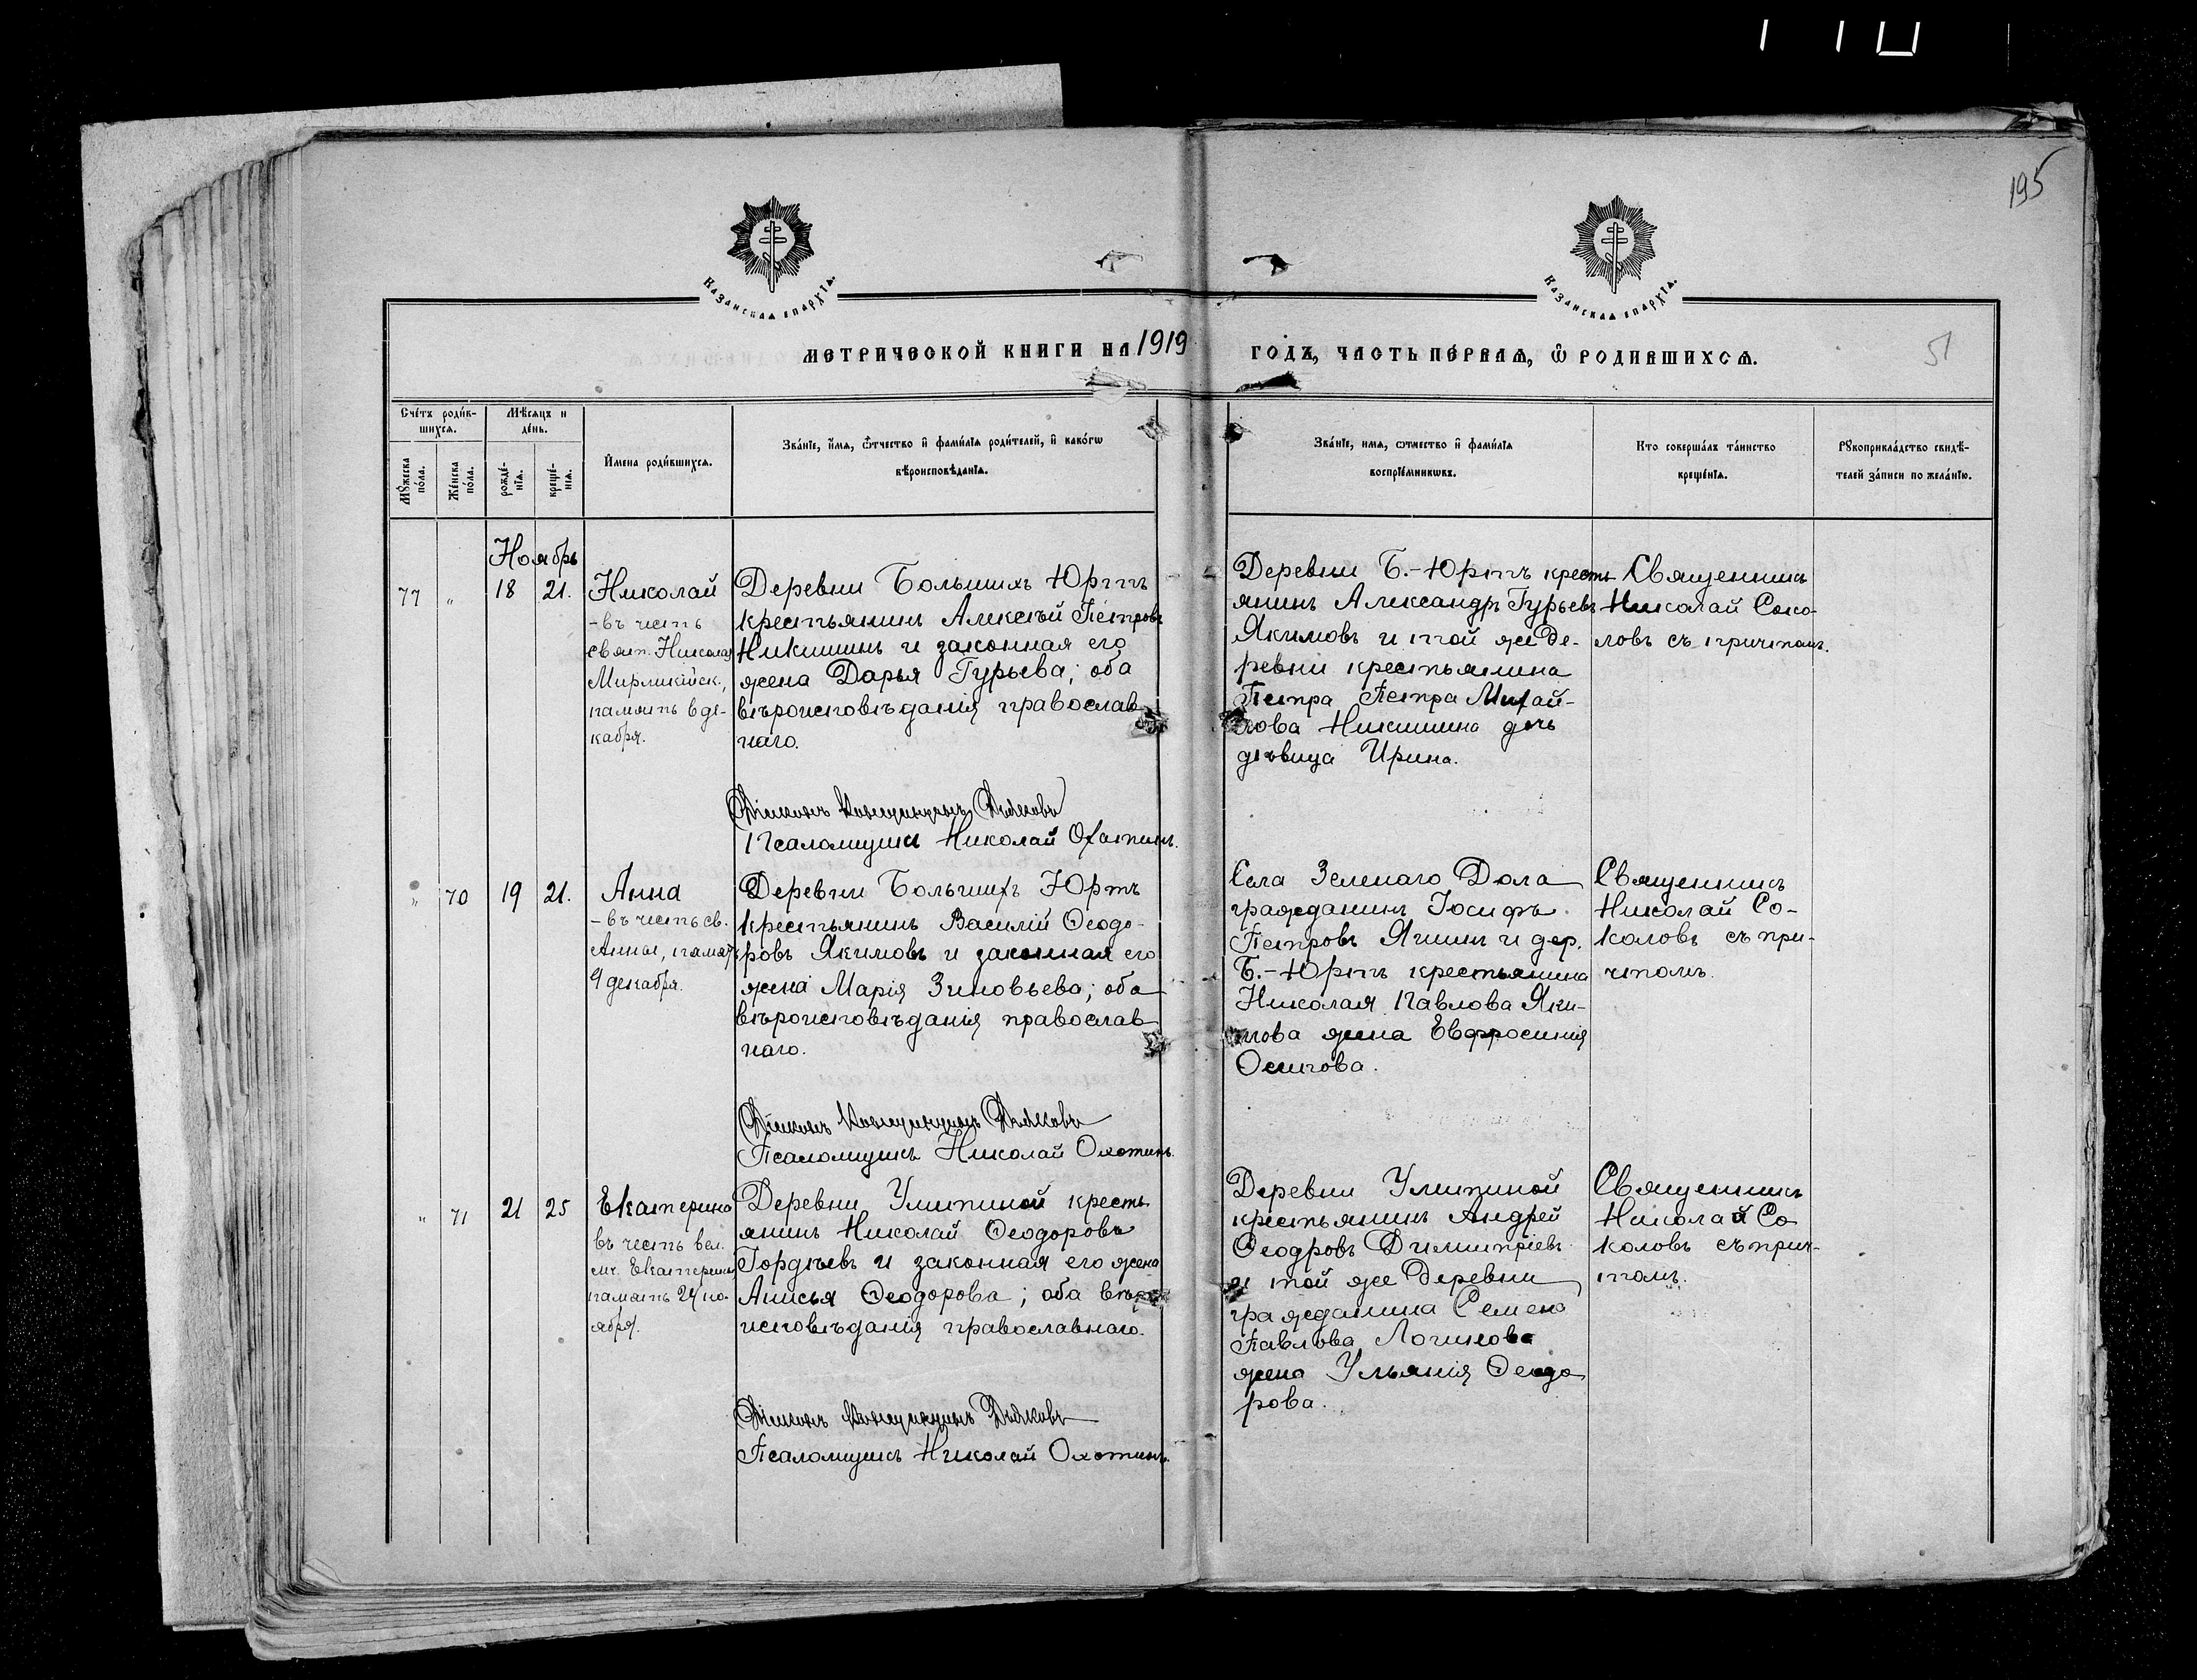 195
Казанская епархїѧ.
Казанская епархїѧ.
МЕТРИЧЕСКОЙ КНИГИ НА 1919 ГОДЪ, ЧАСТЬ ПЕ́РВАѦ, Ѿ РОДИВШИХСѦ.
51
Сче́тъ роди́в-
шихсѧ.
Мѣ́сѧцъ и
де́нь.
И҆мена роди́вшихсѧ.
Зва́нїе, и҆́мѧ, ѻ҆́тчество и҆ фами́лїѧ роди́телей, и҆ како́гѡ
вѣроисповѣ́данїѧ.
Зва́нїе, имѧ, ѻтчество и҆ фами́лїѧ
воспрїе́мникѡвъ.
Кто соверша́лъ та́инство
креще́нїѧ.
Рꙋкоприкла́дство свидѣ́-
телей за́писи по жела́нїю.
Мꙋ́жеска
по́ла.
Же́нска
по́ла.
рожде́-
нїѧ.
креще́-
нїѧ.
Ноябрь
77 „ 18 21.
Николай
- въ честь
свят. Николая
Мирликійск.,
память 6 де-
кабря.
Деревни Большихъ Юртъ
крестьянинъ Алексѣй Петровъ
Никишинъ и законная его
жена Дарья Гурьева; оба
вѣроисповѣданія православ
наго.
Діаконъ Константинъ Дьяковъ
Псаломщикъ Николай Охотинъ.
Деревни Б.-Юртъ кресть
янинъ Александръ Гурьевъ
Якимовъ и той же де-
ревни крестьянина
Петра Петра Михай-
лова Никишина дочь
дѣвица Ирина.
Священникъ
Николай Соко-
ловъ съ причтомъ.
„ 70 19 21.
Анна
- въ честь св.
Анны, память
9 декабря.
Деревни Большихъ Юртъ
крестьянинъ Василій Ѳеодо-
ровъ Якимовъ и законная его
жена Марія Зиновьева; оба
вѣроисповѣданія православ
наго.
Діаконъ Константинъ Дьяковъ
Псаломщикъ Николай Охотинъ.
Села Зеленаго Дола
гражданинъ Іосифъ
Петровъ Яшинъ и дер.
Б.-Юртъ крестьянина
Николая Павлова Яки-
мова жена Евфросинія
Осипова.
Священникъ
Николай Со-
коловъ съ при-
чтомъ.
„ 71 21 25
Екатерина
въ честь вел.
мч. Екатерины
память 24 но-
ября.
Деревни Улитиной кресть
янинъ Николай Ѳеодоровъ
Гордѣевъ и законная его жена
Анисья Ѳеодорова; оба вѣро
исповѣданія православнаго.
Діаконъ Константинъ Дьяковъ
Псаломщикъ Николай Охотинъ.
Деревни Улитиной
крестьянинъ Андрей
Ѳеодровъ Димитріевъ
и той же деревни
гражданина Семена
Павлова Логинова
жена Ульянія Ѳеодо
рова.
Священникъ
Николай Со
коловъ съ прич-
томъ.